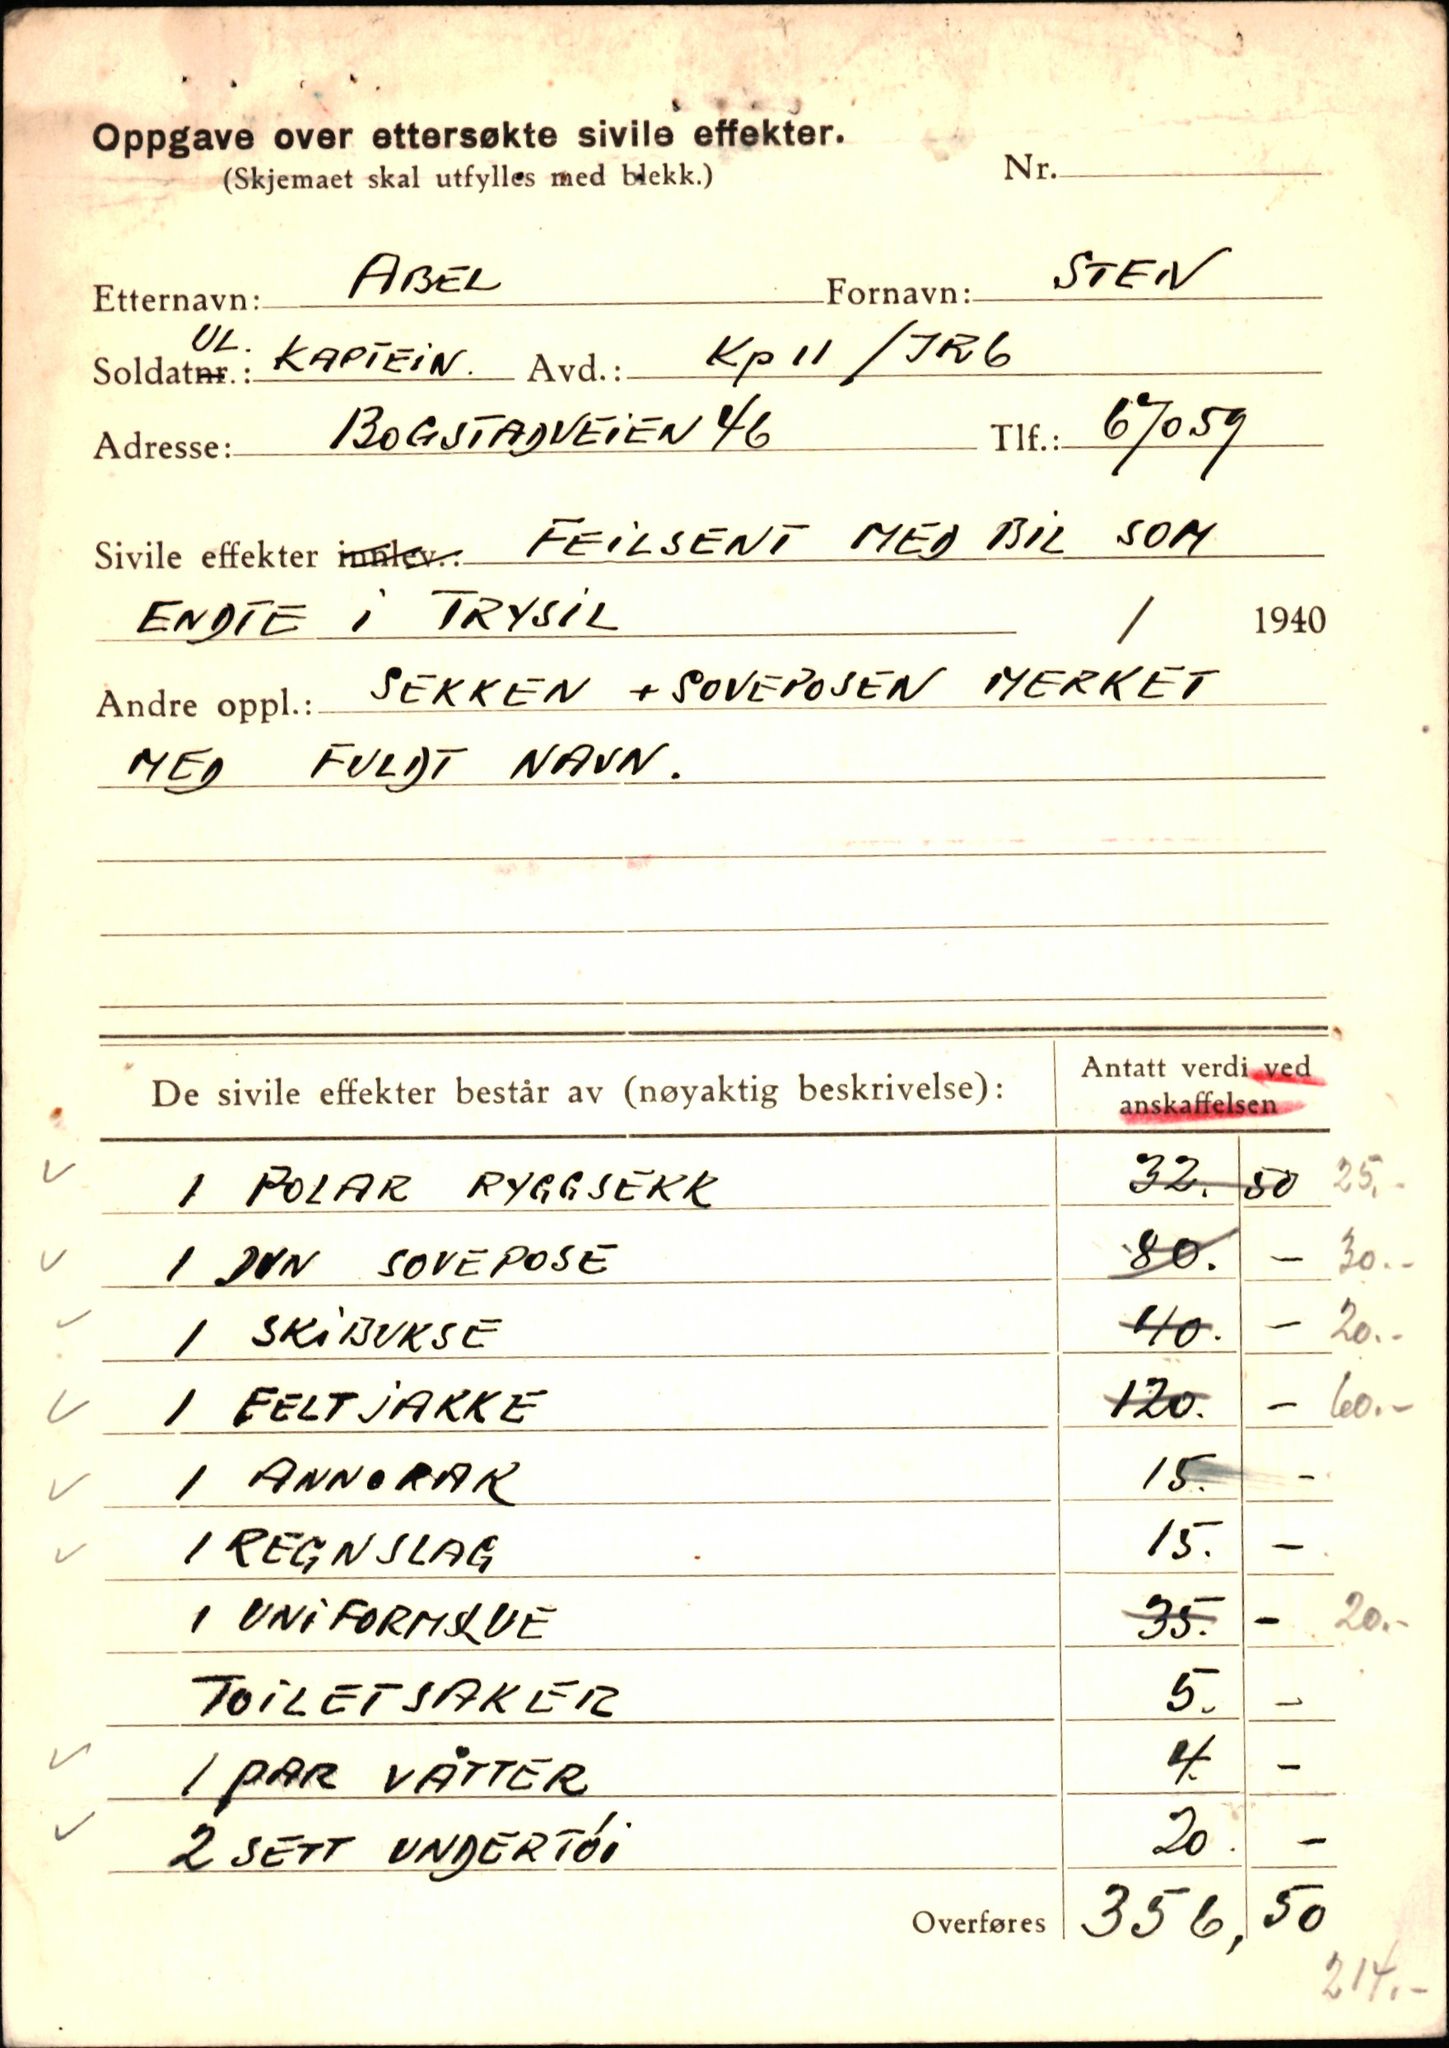 Oppgave over ettersøkte sivile effekter.
(Skjemaet skal utfylles med blekk.)
Nr.
Etternavn: ABEL Fornavn: STEN
UL.
Soldatnr.: KAPTEIN. Avd.: Kp 11 / IR6
Adresse: BOGSTADVEIEN 46 Tlf.: 67059
Sivile effekter innlev.: FEILSENT MED BIL SOM
ENDTE I TRYSIL / 1940
Andre oppl.: SEKKEN + SOVEPOSEN MERKET
MED FULDT NAVN.
De sivile effekter består av (nøyaktig beskrivelse): Antatt verdi ved
anskaffelsen
1 POLAR RYGGSEKK 32. 50 25,-
1 DUN SOVEPOSE 80. - 30.-
1 SKIBUKSE 40. - 20.-
1 FELTJAKKE 120. - 60.-
1 ANNORAK 15. -
1 REGNSLAG 15. -
1 UNIFORMSLUE 35. - 20.-
TOILETSAKER 5. -
1 PAR VÅTTER 4. -
2 SETT UNDERTÓI 20. -
Overføres 356,50
214.-